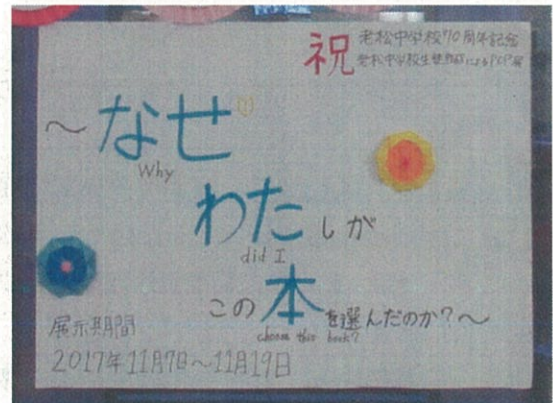 祝 老松中学校70周年記念
老松中学校生徒によるPOP展
～なぜ
Why
わたしが
did I
この本を選んだのか?～
choose this book?
展示期間
2017年11月7日～11月19日